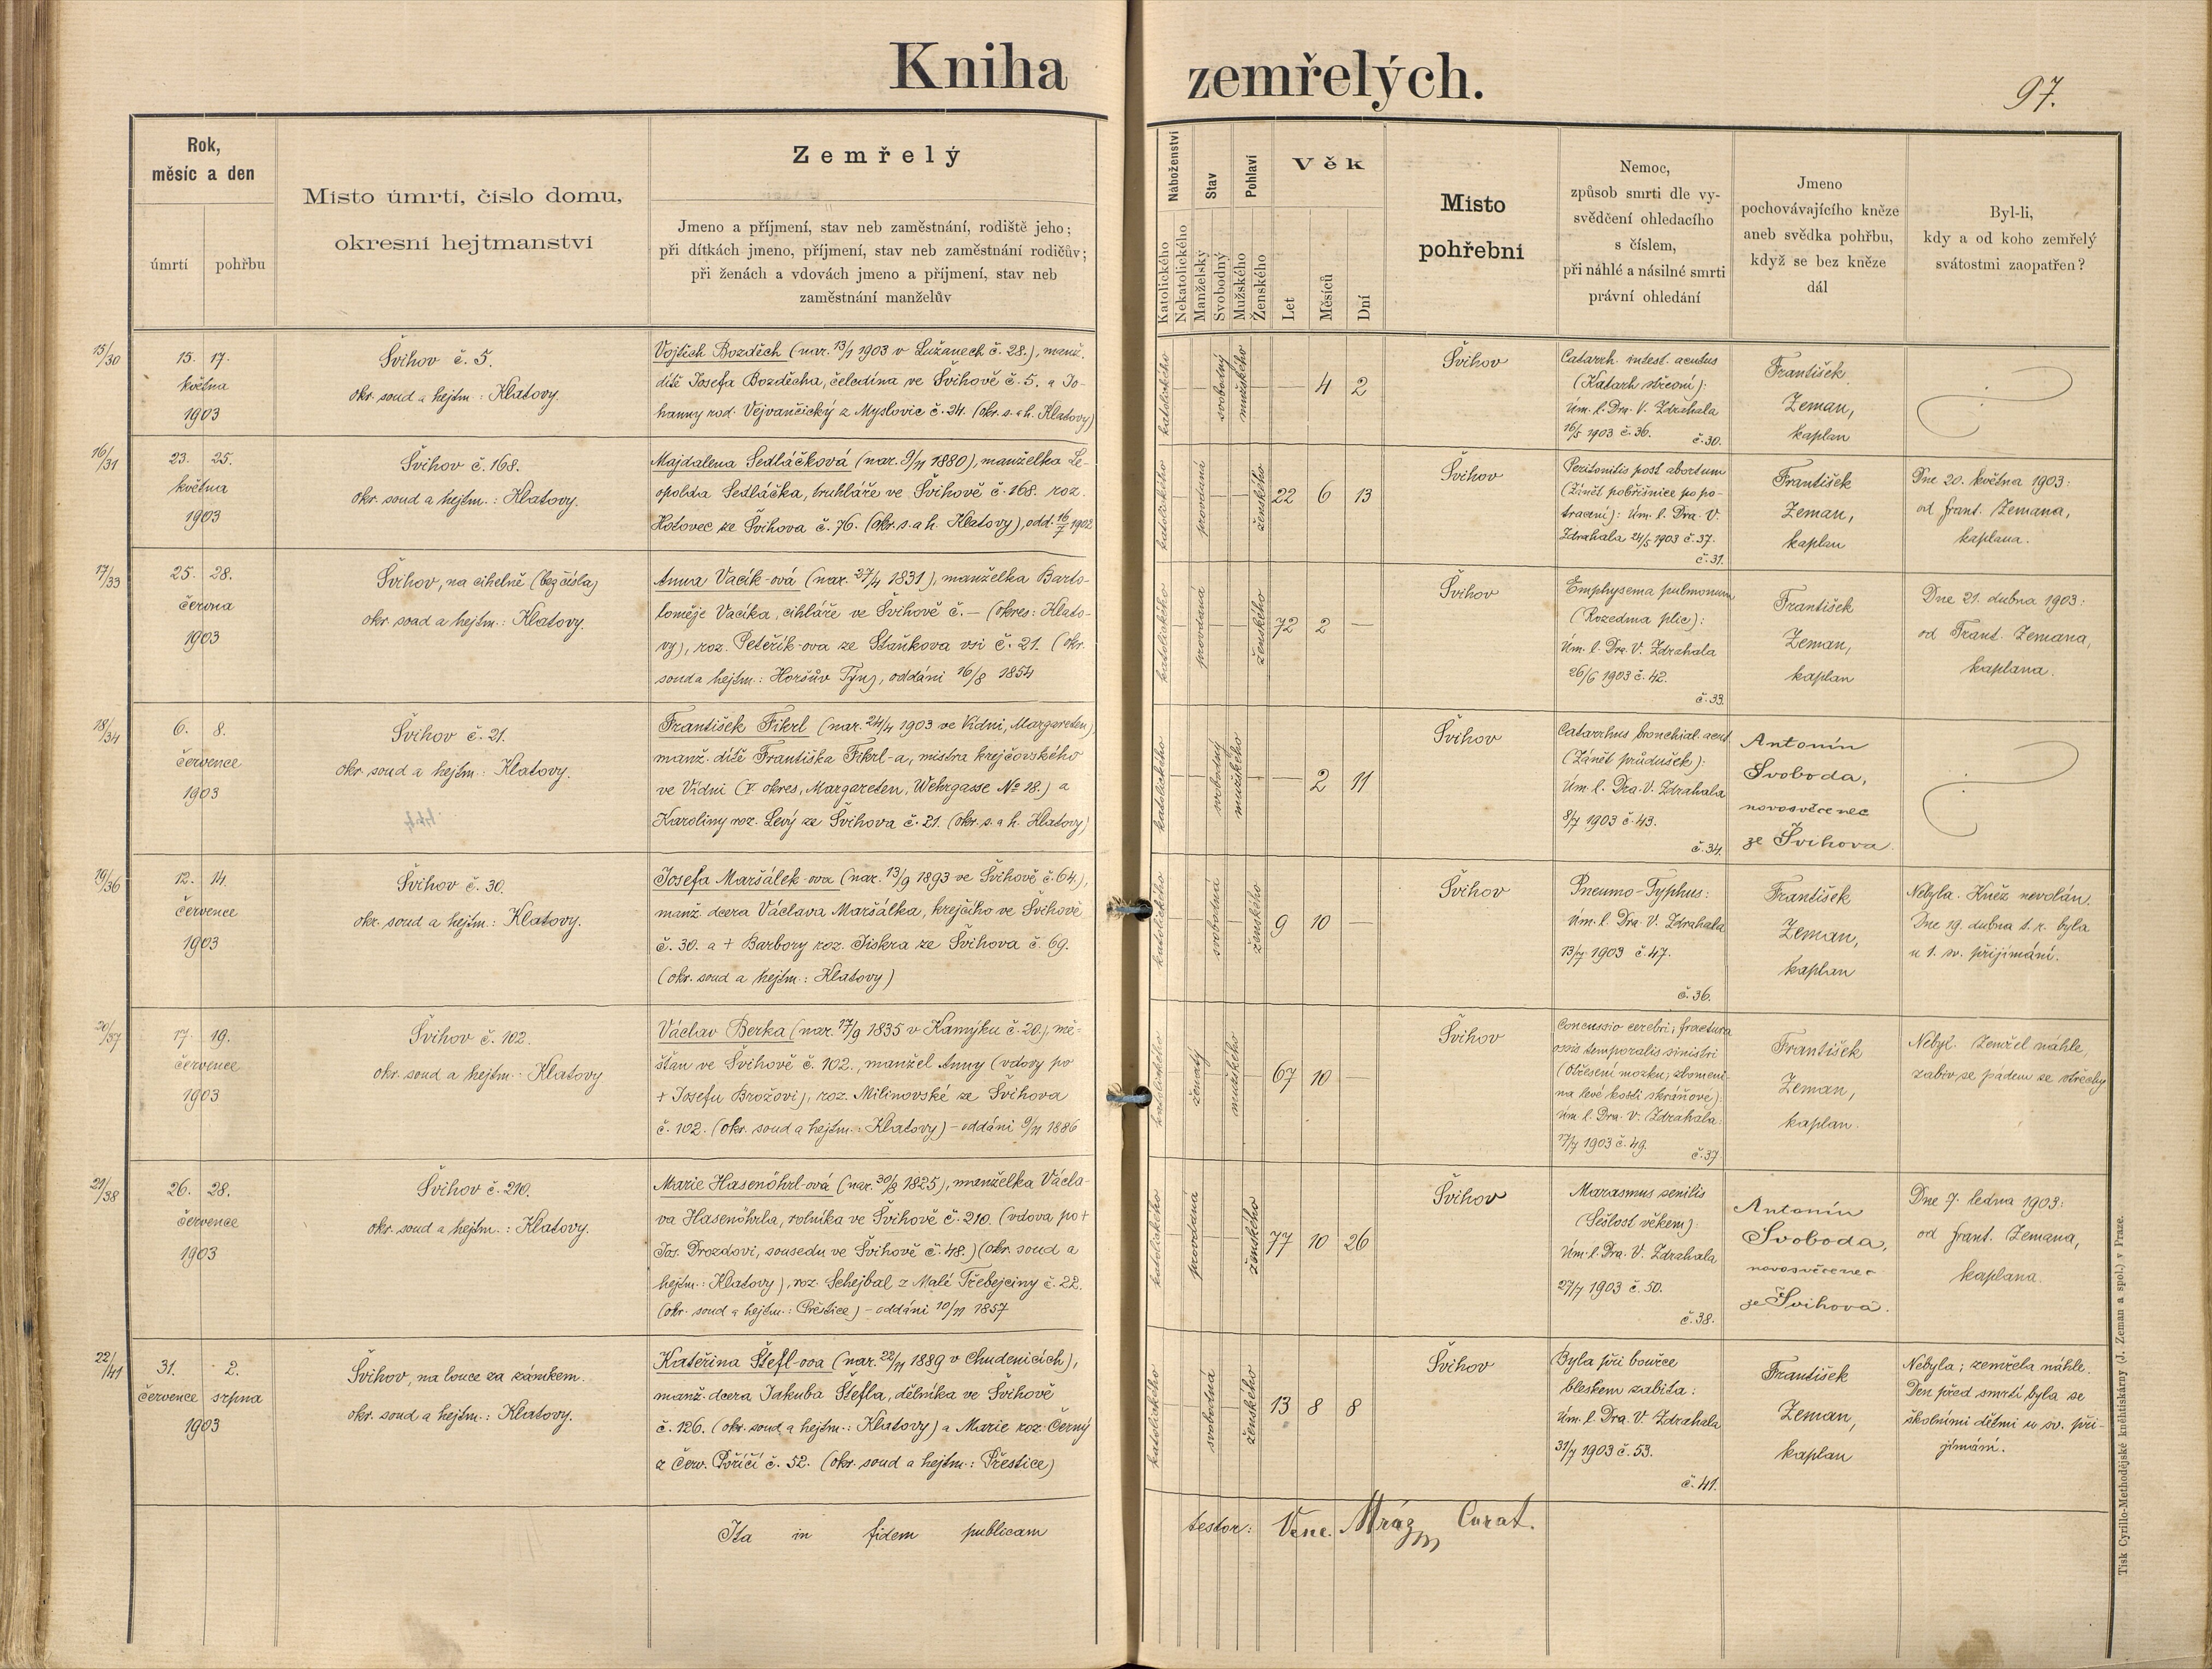 Kniha zemřelých.
97.
Rok,
měsíc a den
úmrtí
pohřbu
Místo úmrtí, číslo domu,
okresní hejtmanství
Zemřelý
Jmeno a příjmení, stav neb zaměstnání, rodiště jeho;
při dítkách jmeno, příjmení, stav neb zaměstnání rodičův;
při ženách a vdovách jmeno a příjmení, stav neb
zaměstnání manželův
Náboženství
Katolického
Nekatolického
Stav
Manželský
Svobodný
Pohlaví
Mužského
Ženského
Věk
Let
Měsíců
Dní
Místo
pohřební
Nemoc,
způsob smrti dle vy-
svědčení ohledacího
s číslem,
při náhlé a násilné smrti
právní ohledání
Jmeno
pochovávajícího kněze
aneb svědka pohřbu,
když se bez kněze
dál
Byl-li,
kdy a od koho zemřelý
svátostmi zaopatřen?
15/30
15. 17.
května
1903
Švihov č. 5.
okr. soud a hejtm.: Klatovy.
Vojtěch Bozděch (nar. 13/1 1903 v Lužanech č. 28.), manž.
dítě Josefa Bozděcha, čeledína ve Švihově č. 5. a Jo-
hanny rod. Vejvančický z Myslovic č. 24. (okr. s. a h. Klatovy)
katolického
svobodný
mužského
— 4 2
Švihov
Catarrh. intest. acutus
(Katarh střevní):
úm. l. Dra. V. Zdrahala
16/5 1903 č. 36.
č. 30.
František
Zeman,
kaplan
16/31
23. 25.
května
1903
Švihov č. 168.
okr. soud a hejtm.: Klatovy.
Majdalena Sedláčková (nar. 9/11 1880), manželka Le-
opolda Sedláčka, truhláře ve Švihově č. 168. roz.
Hotovec ze Švihova č. 76. (okr. s. a h. Klatovy), odd. 16/7 1902
katolického
provdaná
ženského
22 6 13
Švihov
Peritonitis post abortum
(Zánět pobřišnice po po-
tracení): úm. l. Dra. V.
Zdrahala 24/5 1903 č. 37.
č. 31.
František
Zeman,
kaplan
Dne 20. května 1903:
od frant. Zemana,
kaplana.
17/33
25. 28.
června
1903
Švihov, na cihelně (bez čísla)
okr. soud a hejtm.: Klatovy.
Anna Vacík-ová (nar. 27/4 1831), manželka Barto-
loměje Vacíka, cihláře ve Švihově č. — (okres: Klato-
vy), roz. Peteřík-ova ze Staňkova vsi č. 21. (okr.
soud a hejtm.: Horšův Týn), oddáni 16/8 1854
katolického
provdaná
ženského
72 2 —
Švihov
Emphysema pulmonum
(Rozedma plic):
úm. l. Dra. V. Zdrahala
26/6 1903 č. 42.
č. 33.
František
Zeman,
kaplan
Dne 21. dubna 1903:
od Frant. Zemana,
kaplana.
18/34
6. 8.
července
1903
Švihov č. 21.
okr. soud a hejtm.: Klatovy.
František Fikrl (nar. 24/4 1903 ve Vídni, Margareten),
manž. dítě Františka Fikrl-a, mistra krejčovského
ve Vídni (V. okres, Margareten, Wehrgasse № 18.) a
Karoliny roz. Levý ze Švihova č. 21. (okr. s. a h. Klatovy)
katolického
svobodný
mužského
— 2 11
Švihov
Catarrhus bronchial. acut
(Zánět průdušek):
úm. l. Dra. V. Zdrahala
8/7 1903 č. 43.
č. 34.
Antonín
Svoboda,
novosvěcenec
ze Švihova.
19/36
12. 14.
července
1903
Švihov č. 30.
okr. soud a hejtm.: Klatovy.
Josefa Maršálek-ova (nar. 13/9 1893 ve Švihově č. 64.),
manž. dcera Václava Maršálka, krejčího ve Švihově
č. 30. a + Barbory roz. Jiskra ze Švihova č. 69.
(okr. soud a hejtm.: Klatovy)
katolického
svobodná
ženského
9 10 —
Švihov
Pneumo-Typhus:
úm. l. Dra. V. Zdrahala
13/7 1903 č. 47.
č. 36.
František
Zeman,
kaplan
Nebyla. Kněz nevolán.
Dne 19. dubna t. r. byla
u 1. sv. přijímání.
20/37
17. 19.
července
1903
Švihov č. 102.
okr. soud a hejtm.: Klatovy
Václav Berka (nar. 17/9 1835 v Kamýku č. 20.), mě-
šťan ve Švihově č. 102., manžel Anny (vdovy po
+ Josefu Brožovi), roz. Milinovské ze Švihova
č. 102. (okr. soud a hejtm.: Klatovy) – oddáni 9/11 1886
katolického
ženatý
mužského
67 10 —
Švihov
Concussio cerebri; fractura
ossis temporalis sinistri
(Otřesení mozku, zlomeni-
na levé kosti skráňové):
úm. l. Dra. V. Zdrahala:
17/7 1903 č. 49.
č. 37
František
Zeman,
kaplan.
Nebyl. Zemřel náhle,
zabiv se pádem se střechy
21/38
26. 28.
července
1903
Švihov č. 210.
okr. soud a hejtm.: Klatovy.
Marie Hasenöhrl-ová (nar. 30/8 1825), manželka Václa-
va Hasenöhrla, rolníka ve Švihově č. 210. (vdova po +
Jos. Drozdovi, sousedu ve Švihově č. 48.) (okr. soud a
hejtm.: Klatovy), roz. Sehejbal z Malé Třebejciny č. 22.
(okr. soud a hejtm.: Přeštice) – oddáni 10/11 1857
katolického
provdaná
ženského
77 10 26
Švihov
Marasmus senilis
(Sešlost věkem):
úm. l. Dra. V. Zdrahala
27/7 1903 č. 50.
č. 38.
Antonín
Svoboda,
novosvěcenec
ze Švihova.
Dne 7. ledna 1903:
od frant. Zemana,
kaplana.
22/41
31. 2.
července srpna
1903
Švihov, na louce za zámkem.
okr. soud a hejtm.: Klatovy.
Kateřina Štefl-ova (nar. 22/11 1889 v Chudenicích),
manž. dcera Jakuba Štefla, dělníka ve Švihově
č. 126. (okr. soud a hejtm.: Klatovy) a Marie roz. Černý
z Červ. Poříčí č. 52. (okr. soud a hejtm.: Přestice)
katolického
svobodná
ženského
13 8 8
Švihov
Byla při bouřce
bleskem zabita:
úm. l. Dra. V. Zdrahala
31/7 1903 č. 53.
č. 41.
František
Zeman,
kaplan
Nebyla; zemřela náhle.
Den před smrtí byla se
školními dětmi u sv. při-
jímání.
Ita in fidem publicam testor: Venc. Mráz Curat.
Tisk Cyrillo-Methodějské kněhtiskárny (J. Zeman a spol.) v Praze.